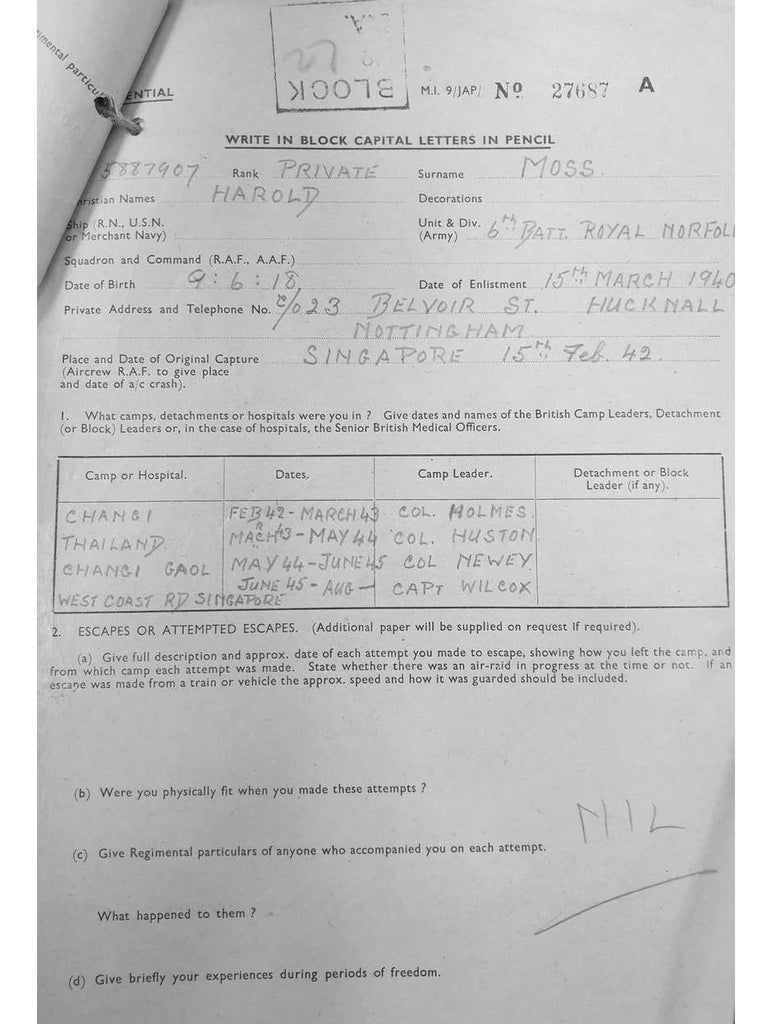 imental particul
ENTIAL
BLOCK
M.I. 9/JAP/ No 27687 A
WRITE IN BLOCK CAPITAL LETTERS IN PENCIL
5887907 Rank PRIVATE Surname MOSS.
ristian Names HAROLD Decorations
Ship (R.N., U.S.N. or Merchant Navy) Unit & Div. (Army) 6th BATT. ROYAL NORFOL
Squadron and Command (R.A.F., A.A.F.)
Date of Birth 9:6:18, Date of Enlistment 15TH MARCH 1940
Private Address and Telephone No. c/o 23 BELVOIR ST. HUCKNALL
NOTTINGHAM
Place and Date of Original Capture SINGAPORE 15TH Feb. 42.
(Aircrew R.A.F. to give place
and date of a/c crash).
1. What camps, detachments or hospitals were you in ? Give dates and names of the British Camp Leaders, Detachment
(or Block) Leaders or, in the case of hospitals, the Senior British Medical Officers.
Camp or Hospital. Dates. Camp Leader. Detachment or Block Leader (if any).
CHANGI FEB 42 - MARCH 43 COL. HOLMES.
THAILAND. MARCH 43 - MAY 44 COL. HUSTON
CHANGI GAOL MAY 44 - JUNE 45 COL NEWEY
WEST COAST RD SINGAPORE JUNE 45 - AUG - CAPT WILCOX
2. ESCAPES OR ATTEMPTED ESCAPES. (Additional paper will be supplied on request if required).
(a) Give full description and approx. date of each attempt you made to escape, showing how you left the camp, and
from which camp each attempt was made. State whether there was an air-raid in progress at the time or not. If an
escape was made from a train or vehicle the approx. speed and how it was guarded should be included.
(b) Were you physically fit when you made these attempts ?
NIL
(c) Give Regimental particulars of anyone who accompanied you on each attempt.
What happened to them ?
(d) Give briefly your experiences during periods of freedom.